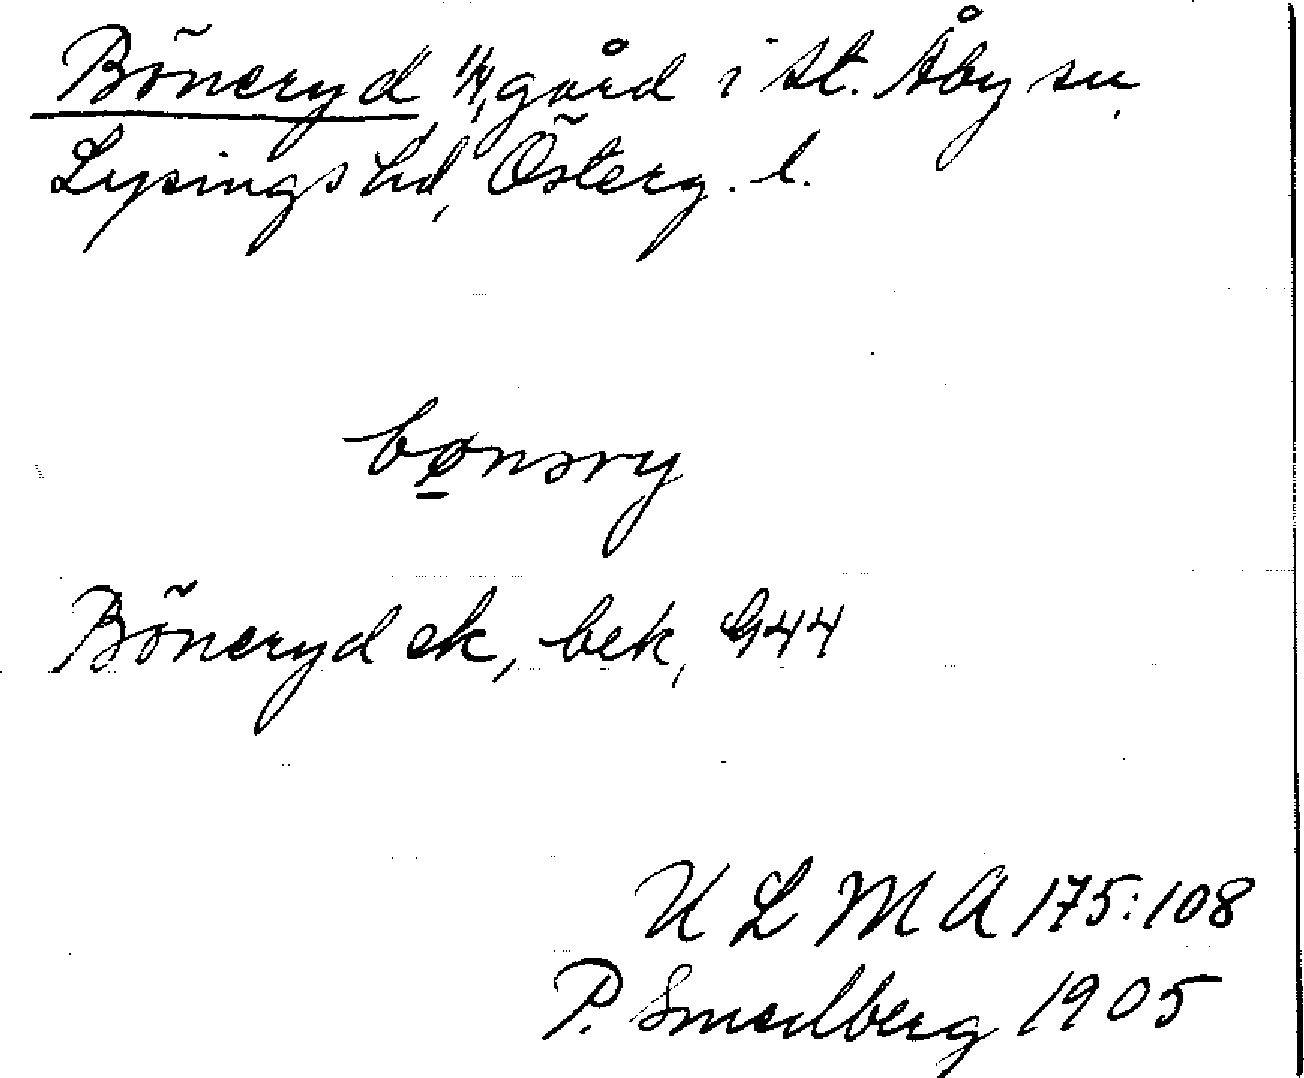 Böneryd 1/4, gård i St. Åby sn,
Lysings hd, Österg. l.
bø̱nəry
Böneryd ek, bek, G44
U L M A 175:108
P. Smedberg 1905